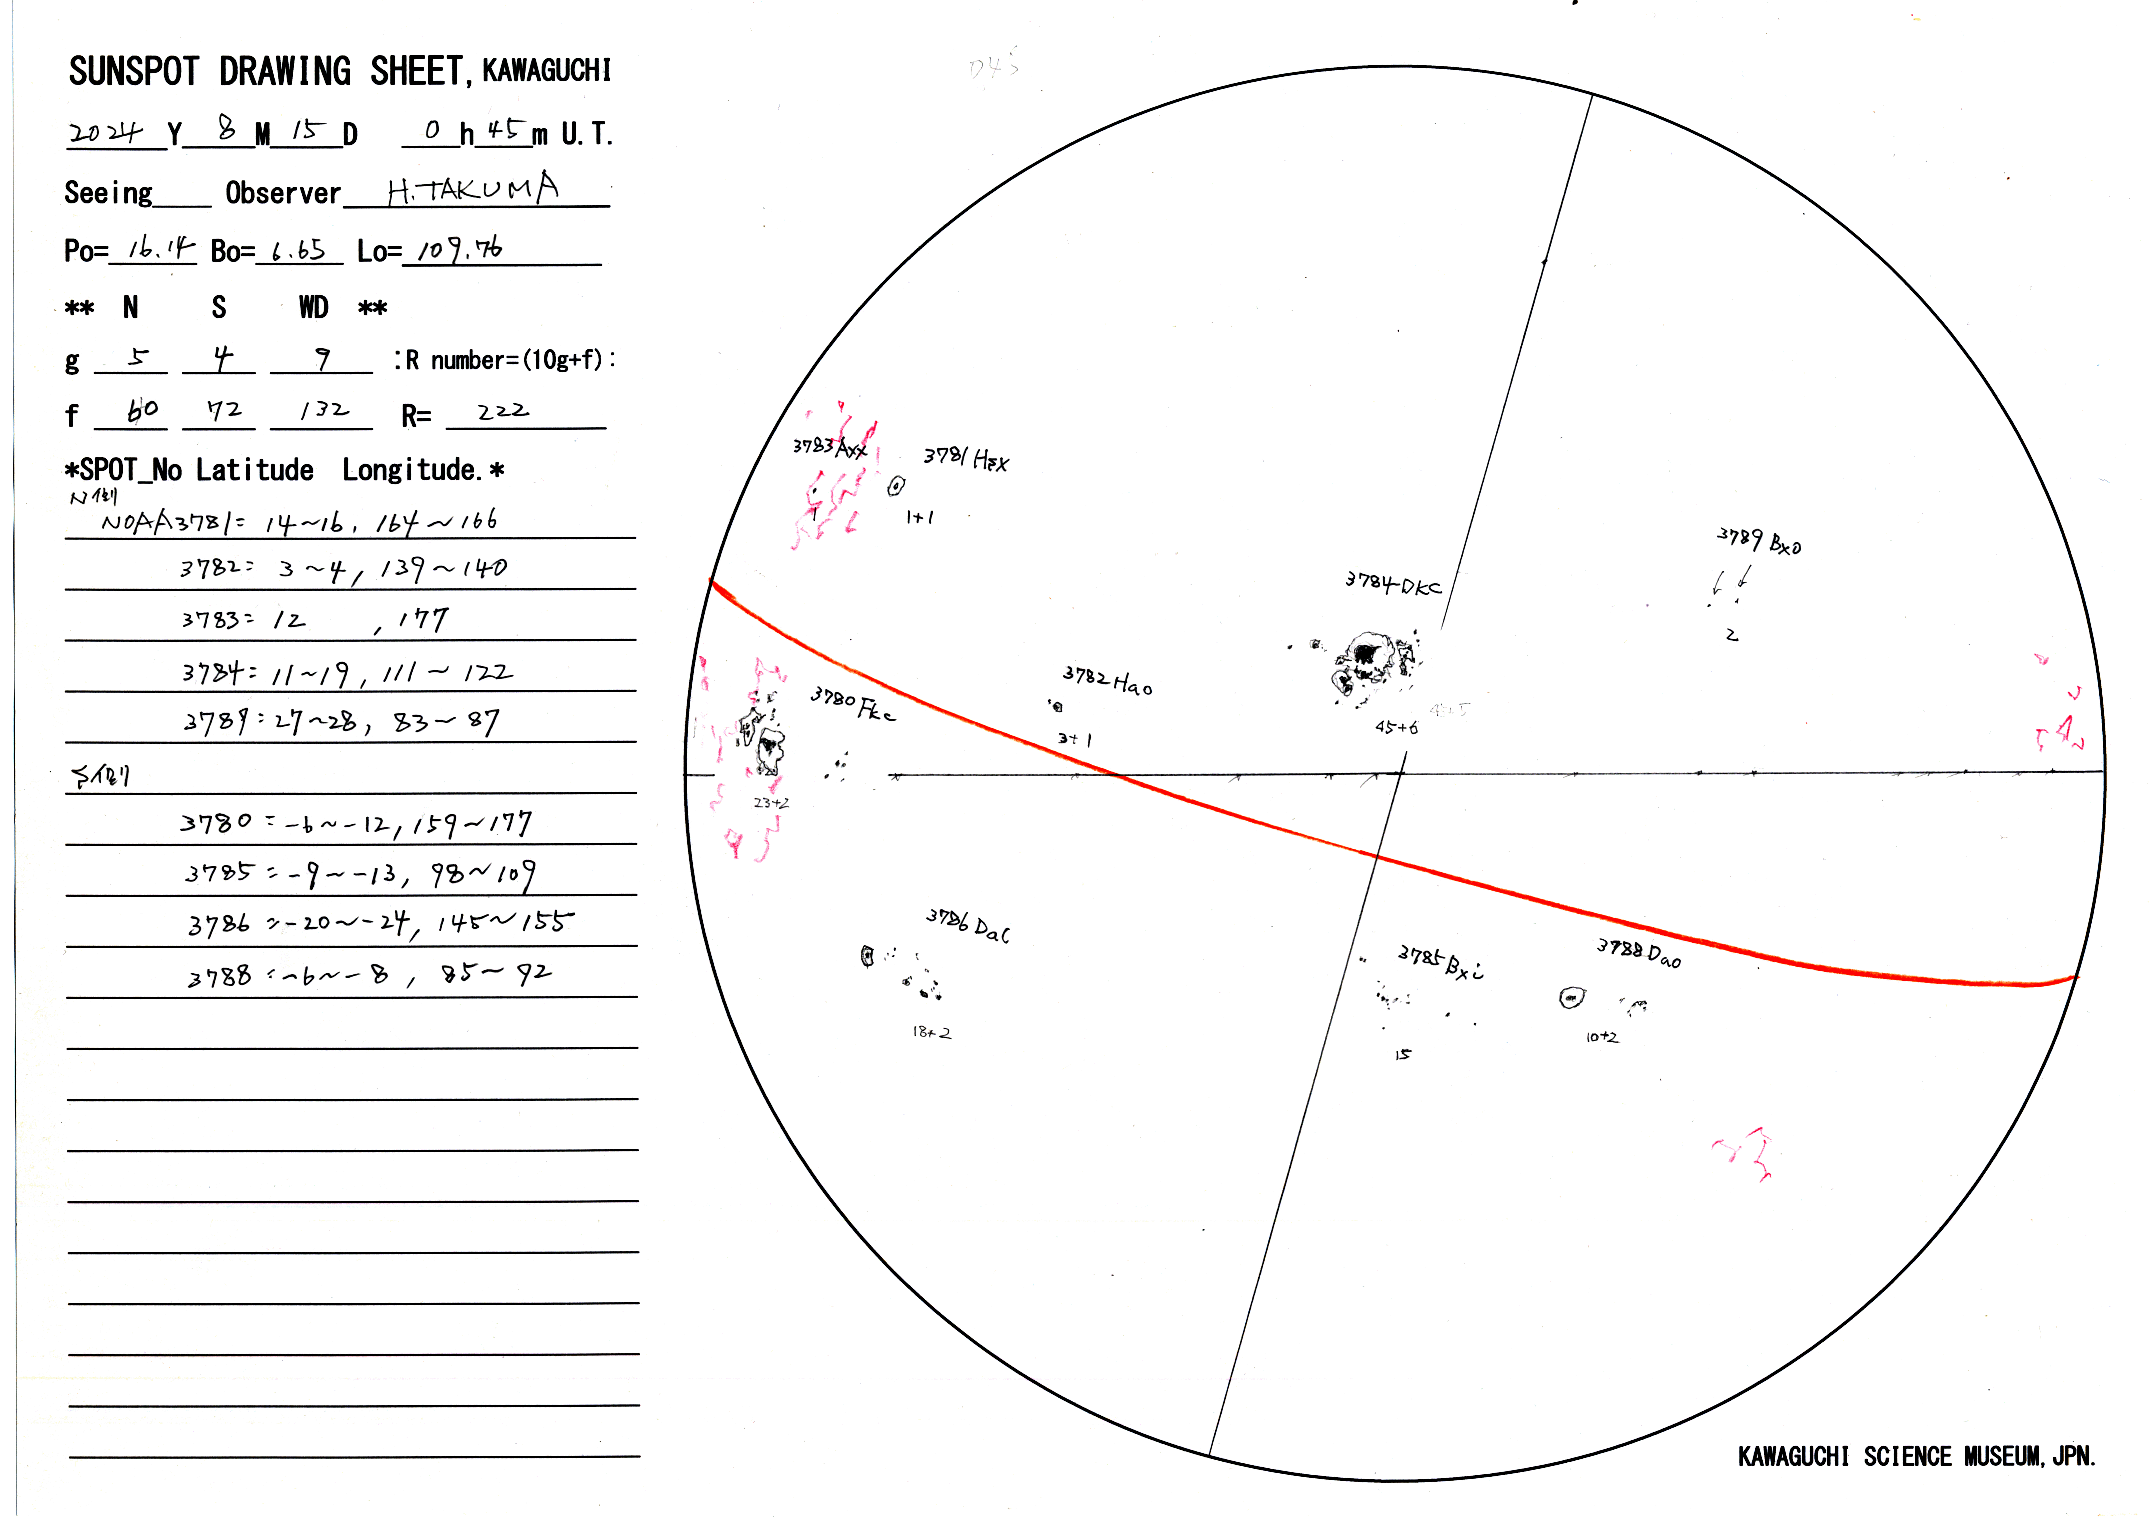 SUNSPOT DRAWING SHEET, KAWAGUCHI
2024 Y 8 M 15 D 0 h 45 m U.T.
Seeing Observer H.TAKUMA
Po= 16.14 Bo= 6.65 Lo= 109.76
** N S WD **
g 5 4 9 :R number=(10g+f):
f 60 72 132 R= 222
*SPOT_No Latitude Longitude.*
N側
NOAA3781= 14~16, 164~166
3782= 3~4, 139~140
3783= 12 , 177
3784= 11~19, 111~122
3789=27~28, 83~87
S側
3780=-6~-12, 159~177
3785=-9~-13, 98~109
3786=-20~-24, 145~155
3788=-6~-8, 85~92
3783 Axx
1
3781 Hsx
1+1
3789 Bxo
2
3784 Dkc
45+6
3782 Hao
3+1
3780 Fkc
23+2
3786 Dac
18+2
3785 Bxi
15
3788 Dao
10+2
KAWAGUCHI SCIENCE MUSEUM, JPN.